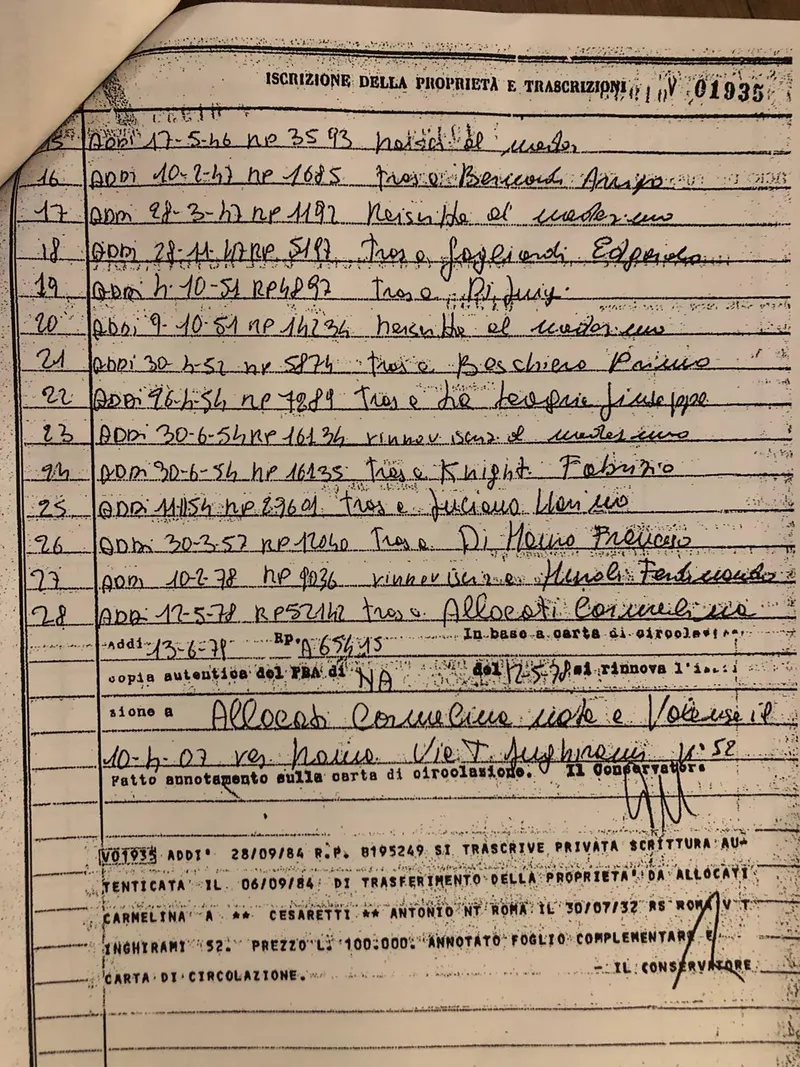 ISCRIZIONE DELLA PROPRIETÀ E TRASCRIZIONI V 01935
15 ADDI 17-5-46 RP 3593 al medes
16 ADDI 10-2-47 RP 1685 tras a Arrigo
17 ADDI 28-3-47 RP 1192 Reiscritta al medesimo
18 ADDI 28-11-47 RP 5197 tras a Gagliardi Edgardo
19 ADDI 4-10-51 RP 4897 tras a
20 ADDI 9-10-51 RP 14234 al medesimo
21 ADDI 30-4-52 RP 5874 tras a Boschiero Primo
22 ADDI 26-4-54 RP 7289 tras a Giuseppe
23 ADDI 30-6-54 RP 16134 rinnov iscriz al medesimo
24 ADDI 30-6-54 RP 16135 tras a Knight Fabrizio
25 ADDI RP 27601 tras a Luciano
26 ADDI 30-3-57 RP 12040 tras a Di
27 ADDI 10-2-78 RP 9036 rinnov iscriz a Ferdinando
28 ADDI 12-5-78 RP 52142 tras a Allocati Carmelina
Addi 13-6-78 Rp. A 65415 In base a carta di circolazione
copia autentica del PRA di NA del 12-5-78 si rinnova l'iscri
zione a Allocati Carmelina nata a il
10-4-07 res Roma Via T. Inghirami n° 52
Fatto annotamento sulla carta di circolazione. Il Conservatore
V01935 ADDI' 28/09/84 R.P. B195249 SI TRASCRIVE PRIVATA SCRITTURA AU-
TENTICATA IL 06/09/84 DI TRASFERIMENTO DELLA PROPRIETA' DA ALLOCATI
CARMELINA A ** CESARETTI ** ANTONIO NT ROMA IL 30/07/32 RS ROMA V T
INGHIRAMI 52. PREZZO L. 100.000. ANNOTATO FOGLIO COMPLEMENTARE E
CARTA DI CIRCOLAZIONE. - IL CONSERVATORE